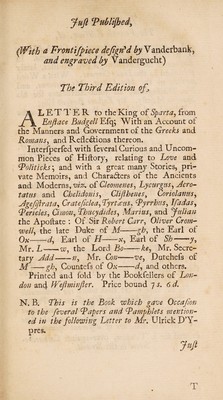 Just Published,
(With a Frontispiece design'd by Vanderbank,
and engraved by Vandergucht)
The Third Edition of,
A LETTER to the King of Sparta, from
Eustace Budgell Esq; With an Account of
the Manners and Government of the Greeks and
Romans, and Reflections thereon.
Interspersed with several Curious and Uncom-
mon Pieces of History, relating to Love and
Politicks; and with a great many Stories, pri-
vate Memoirs, and Characters of the Ancients
and Moderns, viz. of Cleomenes, Lycurgus, Acro-
tatus and Chelidonis, Clisthenes, Coriolanus,
Agesistrata, Cratesiclea, Tyrtæus, Pyrrhus, Isadas,
Pericles, Cimon, Thucydides, Marius, and Julian
the Apostate: Of Sir Robert Carr, Oliver Crom-
well, the late Duke of M——gh, the Earl of
Ox——d, Earl of H——x, Earl of Sh——y,
Mr. L——w, the Lord Bo——ke, Mr. Secre-
tary Add——n, Mr. Con——ve, Dutchess of
M——gh, Countess of Ox——d, and others.
Printed and sold by the Booksellers of Lon-
don and Westminster. Price bound 7 s. 6 d.
N. B. This is the Book which gave Occasion
to the several Papers and Pamphlets mention-
ed in the following Letter to Mr. Ulrick D'Y-
pres.
Just
T